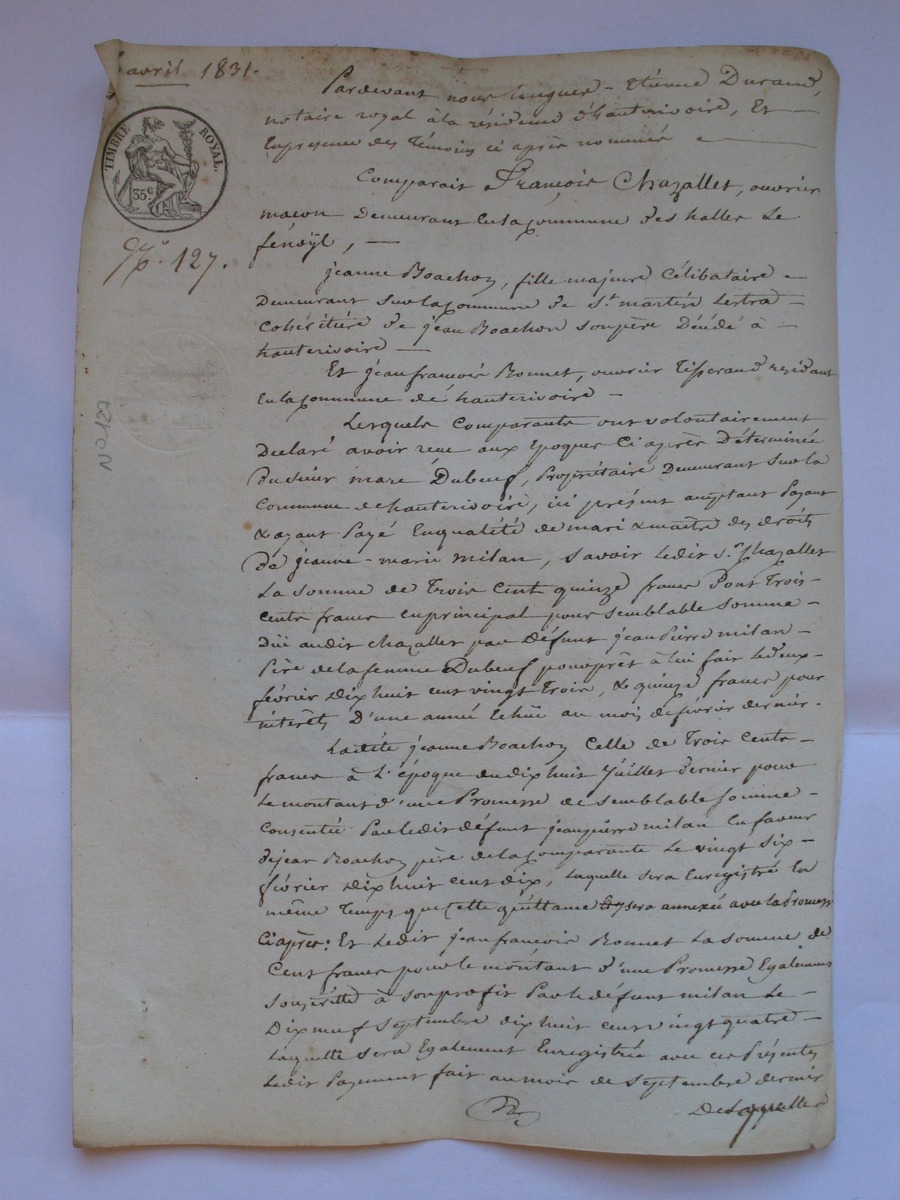 avril 1831.
TIMBRE ROYAL.
35 c
127.
No 127
Pardevant nous hugues-Etienne Durand,
notaire royal à la résidence d'hauterivoire, Et
En presence des Témoins ci après nommés
Comparait François Chazallet, ouvrier
maçon Demeurant En la commune des halles Le
fenoÿl,
jeanne Boachon, fille majeure Célibataire
Demeurant sur la Commune de St martin Lestra
Cohéritière de jean Boachon son père Décédé à
hauterivoire
Et jean françois Bonnet, ouvrier Tisserand residant
En la Commune de hauterivoire
Lesquels Comparants ont volontairement
Déclaré avoir reçu aux Epoques Ci après Déterminée
Du sieur marc Dubœuf, Propriétaire Demeurant sur la
Commune de hauterivoire, ici présent acceptant Payant
& ayant Payé En qualité de mari & maître des droits
De jeanne-marie milan, Savoir Ledit Sr Chazallet
La Somme de Trois Cent quinze francs Dont Trois
Cents francs en principal pour semblable Somme
Düe audit chazallet par Défunt jean Pierre milan
Père de la femme Dubœuf pour prêt à lui fait Le deux
février Dix huit cent vingt Trois, & quinze francs pour
intérêts D'une année Echüe au mois de février dernier.
Ladite jeanne Boachon Celle de Trois Cents
francs à L'époque du dix huit Juillet dernier pour
Le montant d'une Promesse de semblable somme
Consentie Par ledit défunt jean pierre milan En faveur
de jean Boachon père de la Comparante Le vingt Six
février Dix huit cent dix, Laquelle sera Enregistré En
même Temps que Cette quittance & y sera annexée avec la Promesse
Ci après: Et Ledit jean françois Bonnet La somme de
Cent francs pour le montant d'une Promesse Egalement
Souscritte à son profit Par le défunt milan Le
Dix neuf Septembre dix huit cent vingt quatre
Laquelle sera Egalement Enregistrée avec ces Présentes
Ledit Payement fait au mois de Septembre dernier
Desquelles